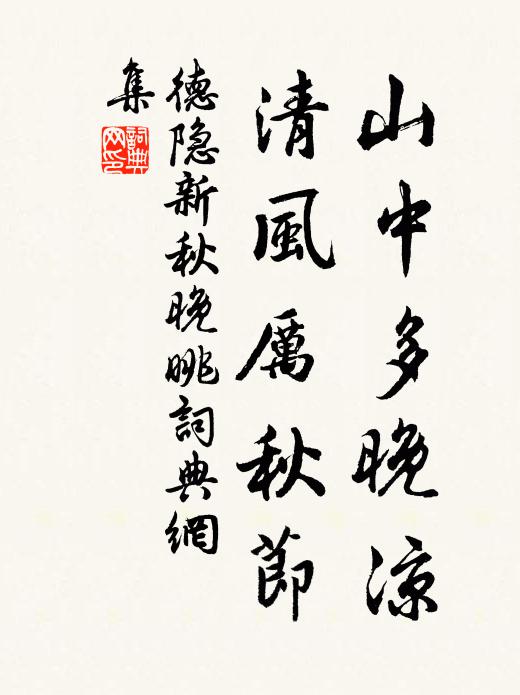 山中多晚凉
清風厲秋節
德隐新秋晚眺詞典網
集
詞典網印